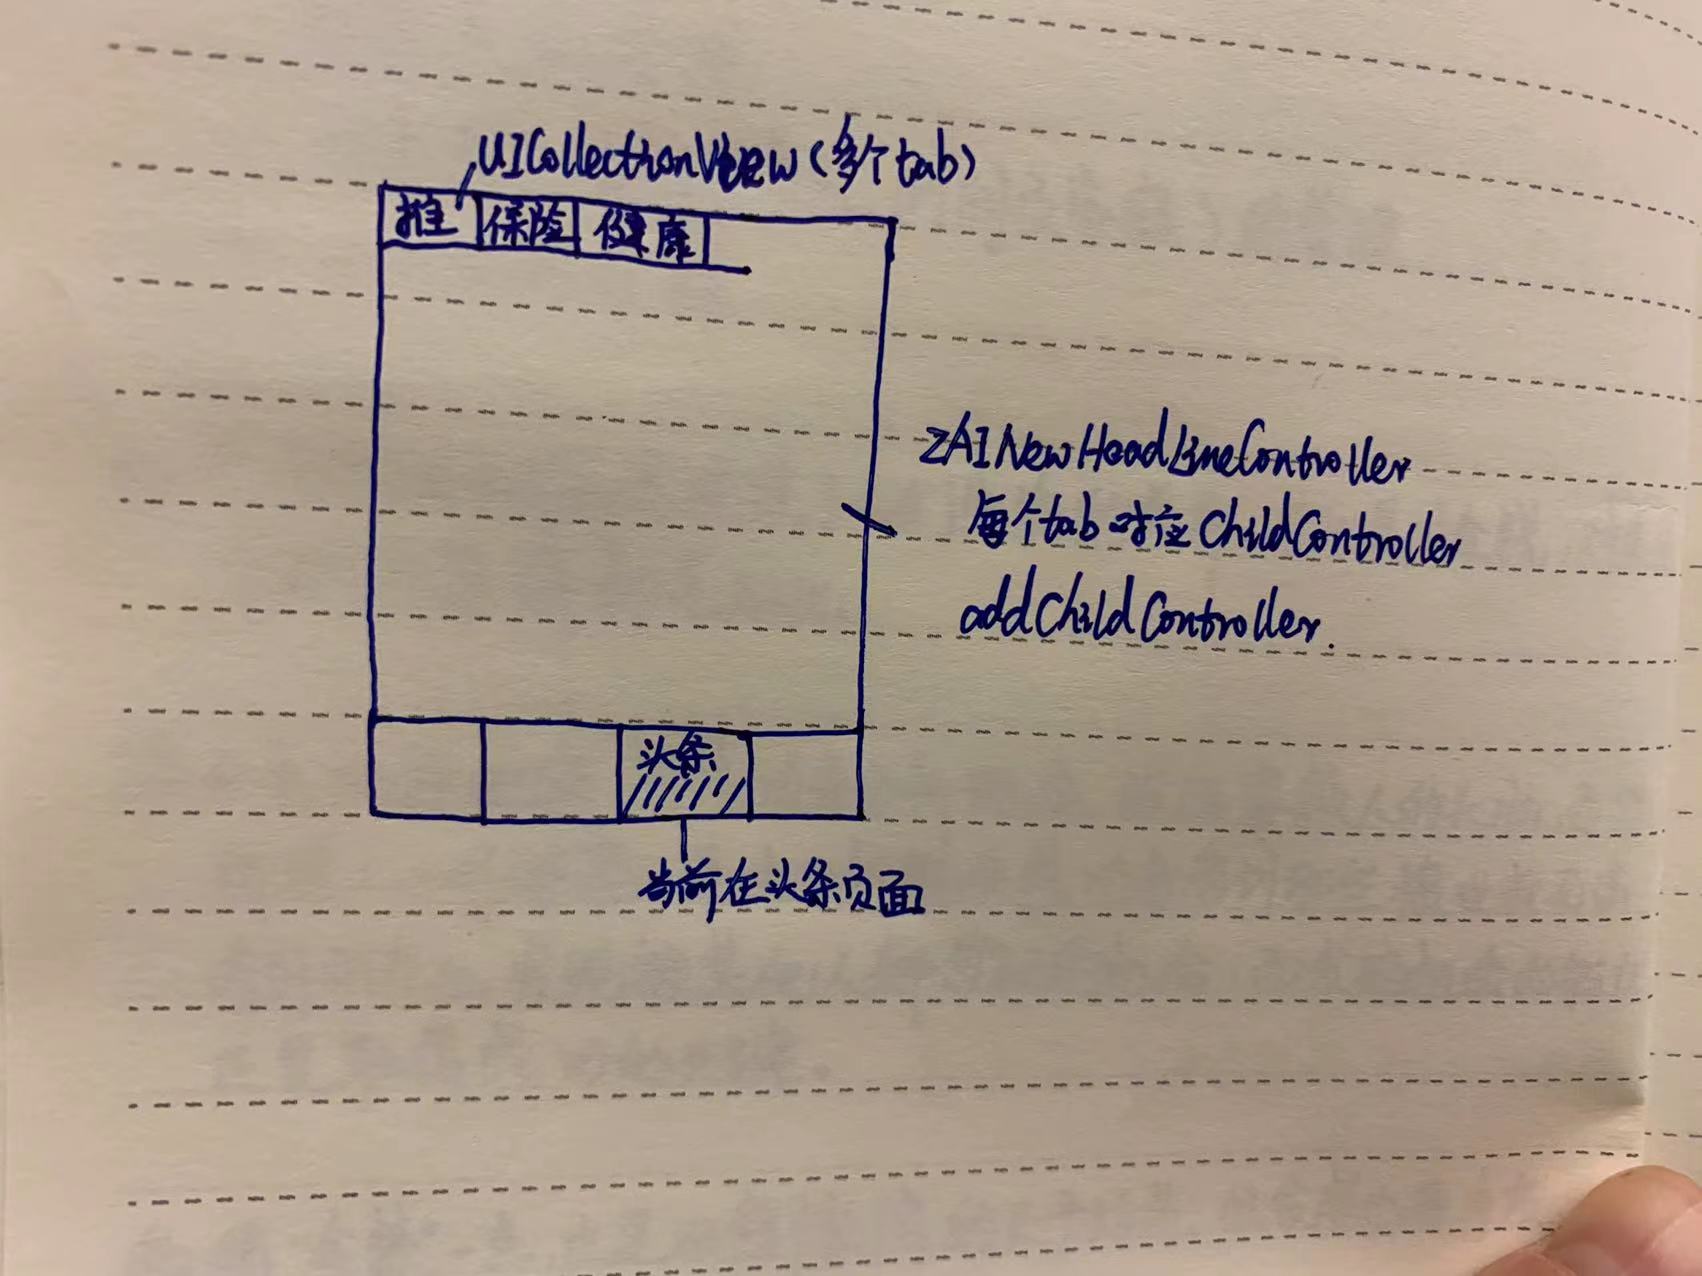 UICollectionView(多个tab)
推 保险 健康
ZAINewHeadLineController
每个tab对应ChildController
addChildController.
头条
当前在头条页面